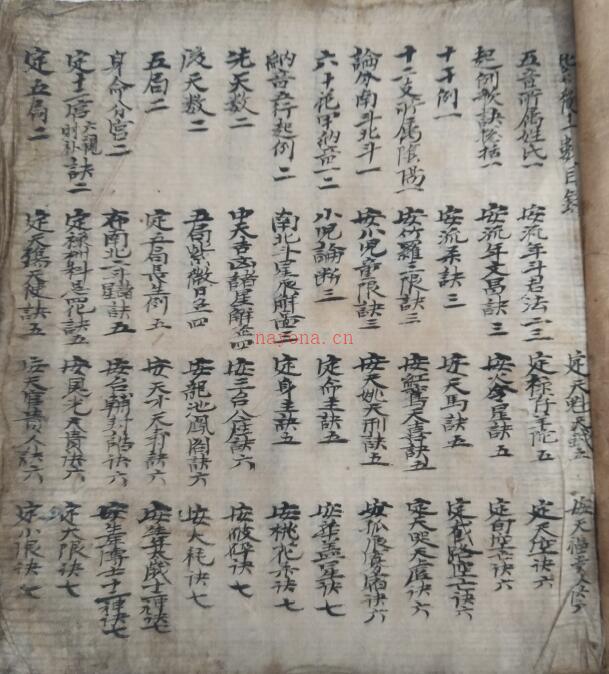 數目錄
五音所属姓氏一
起例歌訣總括一
十干例一
十二支所属陰陽一
論分南斗北斗一
六十花甲納音一二
納音五行起例二
先天数二
後天数二
五局二
身命分宮二
定十二宮六親時訣二
定五局二
安流年斗君法一三
安流年文昌訣三
安流訣三
安竹羅三限訣三
安小児童限訣三
小児論断三
南北斗星辰解三
中天吉凶諸星解四
五局紫微日四
定五局長生例五
布南北二斗諸訣五
定禄权科忌花訣五
定天傷天使訣五
定天魁天鉞五
定禄存羊陀五
安火令星訣五
安天馬訣五
安鸞天喜訣五
安天姚天刑訣五
定命主訣五
定身主訣五
安三台八座訣六
安龍池鳳閣訣六
安天才天寿訣六
安台輔封誥訣六
安恩光天貴訣六
安天官貴人訣六
安天福貴人訣六
定天空訣六
定旬空訣六
定截路空亡訣六
定天哭天虛訣六
安孤辰寡宿訣六
安華盖星訣七
安桃花殺訣七
安破碎訣七
安大耗訣七
安歲十神訣七
安生年博士十二神訣七
定大限訣七
定小限訣七
nayona.cn